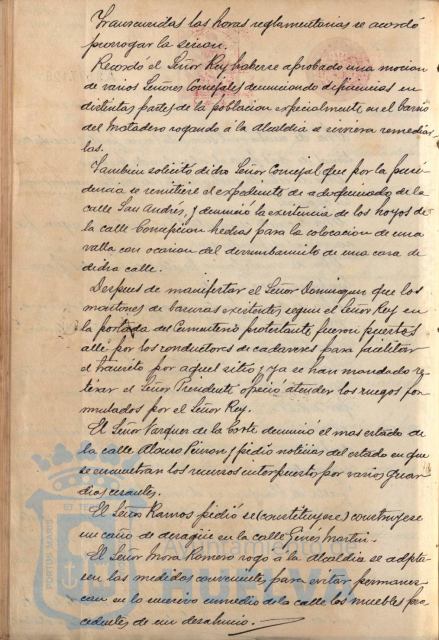 Transcurridas las horas reglamentarias se acordó
prorrogar la sesion.
Recordó el Señor Rey haberse aprobado una mocion
de varios Señores Concejales denunciando deficiencias en
distintas partes de la poblacion especialmente en el barrio
del Matadero rogando á la Alcaldia se sirviera remediar
las.
Tambien solicitó dicho Señor Concejal que por la presi
dencia se remitiese el expediente de adoquinado de la
calle San Andrés, y denunció la existencia de los hoyos de
la calle Concepcion hechos para la colocacion de una
valla con ocasion del derrumbamiento de una casa de
dicha calle.
Despues de manifestar el Señor Dominguez que los
montones de basuras existentes segun el Señor Rey en
la portada del Cementerio protestante, fueron puestos
alli por los conductores de cadaveres para facilitar
el tránsito por aquel sitio y ya se han mandado re
tirar el Señor Presidente ofreció atender los ruegos for
mulados por el Señor Rey.
El Señor Vazquez de la Corte denunció el mal estado de
la calle Alonso Pinzon y pidió noticias del estado en que
se encuentran los recursos interpuestos por varios guar
dias cesantes.
El Señor Ramos pidió se (constituyese) construyese
un caño de desagüe en la calle Ginés Martin.
El Señor Mora Romero rogó á la Alcaldia se adopta
sen las medidas convenientes para evitar permanez
can en lo sucesivo en medio de la calle los muebles pro
cedentes de un desahucio.
PORTUS MARIS
ET TE